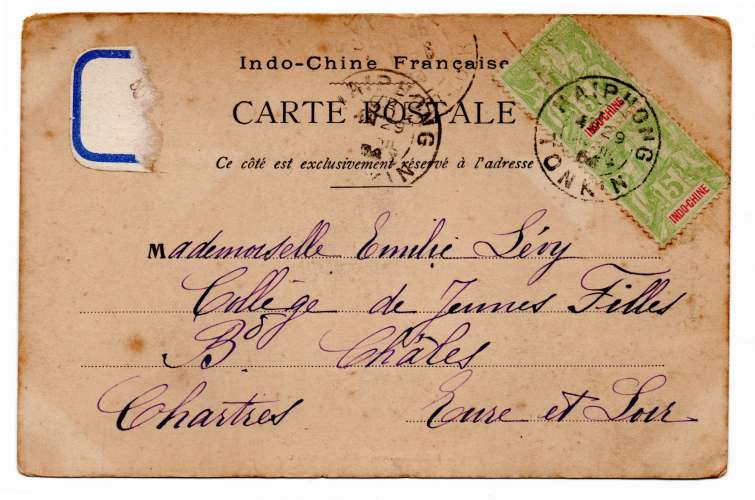 Indo-Chine Française
CARTE POSTALE
Ce côté est exclusivement réservé à l'adresse
HAIPHONG
29
TONKIN
HAIPHONG
29
TONKIN
INDO-CHINE
INDO-CHINE
15
Mademoiselle Emilie Lévy
Collège de Jeunes Filles
Bd Châles
Chartres Eure et Loir